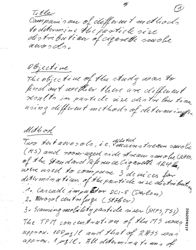 Title
Comparisons of different methods
to determine the particle size
distribution of cigarette smoke
aerosols.
Objective
The objective of the study was to
find out whether there are different
results in particle size distribution
using different methods of determining.
Method
Two test aerosols, i.e. mainstream smoke
(MS) and room-aged side stream smoke
of the Standard Reference Cigarette
were used to compare 3 devices for
determination of the particle size distribution
1. Cascade impactor
2. Aerosol centrifuge (Stöber)
3. Scanning mobility particle sizer
The TPM concentration of the MS were
approx. µg/l and that of RASS was
approx. µg/l. All determinations of